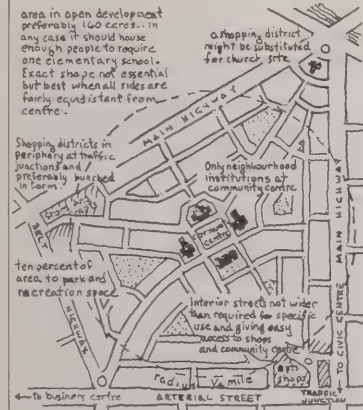 area in open development
preferably 160 acres.. in
any case it should house
enough people to require
one elementary school.
Exact shape not essential
but best when all sides are
fairly equidistant from
centre.
a shopping district
might be substituted
for church site
MAIN HIGHWAY
Shopping districts in
periphery at traffic
junctions and
preferably bunched
in form.
Only neighbourhood
institutions at
community centre
MAIN HIGHWAY
centre
ten percent of
area to park and
recreation space
Interior streets not wider
than required for specific
use and giving easy
access to shops
and community centre
HIGHWAY
radius ¼ mile
shops
TO CIVIC CENTRE
to business centre
ARTERIAL STREET
TRAFFIC
JUNCTION